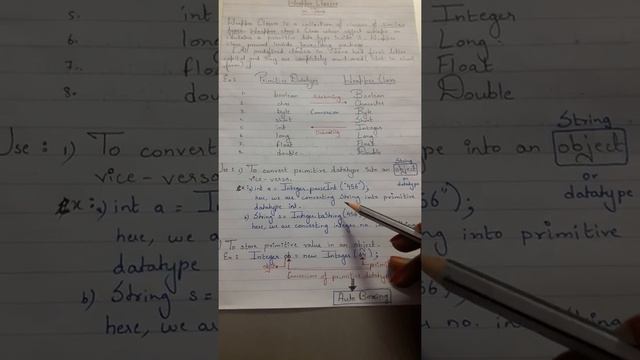 Wrapper Classes
in Java
Wrapper Class is a collection of classes of similar
types. Wrapper class is class whose object wraps or
contains a primitive data type inside it. Wrapper
class present inside java.lang package.
All predefined classes in Java had first letter
capital and they are completely mentioned (not in short
form).
Ex: Primitive Datatype Wrapper Class
1. boolean Autoboxing Boolean
2. char Character
3. byte Conversion Byte
4. short Short
5. int Unboxing Integer
6. long Long
7. float Float
8. double Double
Use: 1) To convert primitive datatype into an object
vice-versa.
String
or
datatype
Ex: a) int a = Integer.parseInt("456");
here, we are converting String into primitive
datatype int.
b) String s = Integer.toString(456
here, we are converting integer no. into
) To store primitive value in an object.
Ex: Integer ob = new Integer(24);
object primi
Conversion of primitive datatype
Auto Boxing
5. int
6. long
7. float
8. dou
Use: 1) To
vice-versa
Ex: a) int a =
here, w
datatype
b) String s
here, we a
Integer
Long
Float
Double
String
into an object
or
datatype
56");
into primitive
no. in